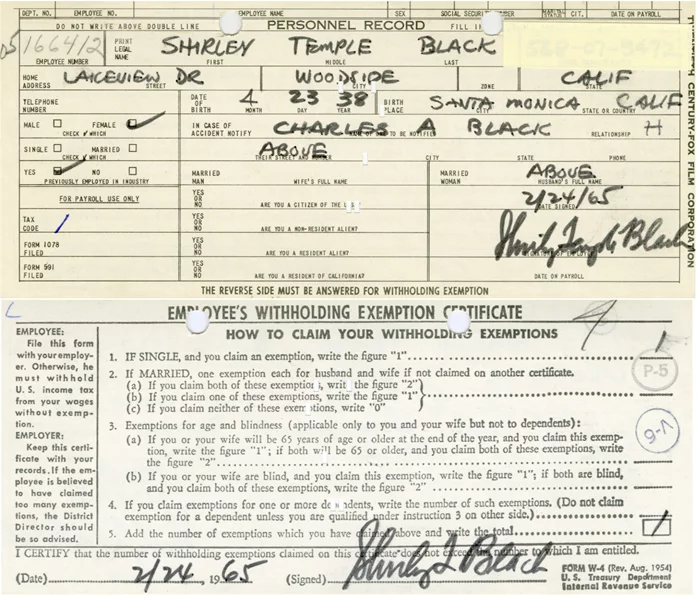 DEPT. NO. EMPLOYEE NO. EMPLOYEE NAME SEX SOCIAL SECURITY NUMBER MARITAL STATUS CIT. DATE ON PAYROLL
DO NOT WRITE ABOVE DOUBLE LINE PERSONNEL RECORD FILL IN
1664/2 PRINT LEGAL NAME SHIRLEY TEMPLE BLACK
EMPLOYEE NUMBER FIRST MIDDLE LAST
HOME ADDRESS LAKEVIEW DR WOODSIDE CALIF
STREET CITY ZONE STATE
TELEPHONE NUMBER DATE OF BIRTH 4 23 38 BIRTH PLACE SANTA MONICA CALIF
MONTH DAY YEAR CITY STATE OR COUNTRY
MALE FEMALE IN CASE OF ACCIDENT NOTIFY CHARLES A BLACK H
CHECK WHICH NAME OF ONE TO BE NOTIFIED RELATIONSHIP
SINGLE MARRIED ABOVE
CHECK WHICH THEIR STREET AND NUMBER CITY STATE PHONE
YES NO MARRIED MAN MARRIED WOMAN ABOVE
PREVIOUSLY EMPLOYED IN INDUSTRY WIFE'S FULL NAME HUSBAND'S FULL NAME
FOR PAYROLL USE ONLY YES OR NO ARE YOU A CITIZEN OF THE U.S. 2/24/65
DATE SIGNED
TAX CODE / YES OR NO ARE YOU A NON-RESIDENT ALIEN? Shirley Temple Black
SIGNATURE OF EMPLOYEE
FORM 1078 FILED YES OR NO ARE YOU A RESIDENT ALIEN?
FORM 591 FILED YES OR NO ARE YOU A RESIDENT OF CALIFORNIA? DATE ON PAYROLL
THE REVERSE SIDE MUST BE ANSWERED FOR WITHHOLDING EXEMPTION
CENTURY-FOX FILM CORPORATION
EMPLOYEE'S WITHHOLDING EXEMPTION CERTIFICATE
HOW TO CLAIM YOUR WITHHOLDING EXEMPTIONS
EMPLOYEE:
File this form
with your employ-
er. Otherwise, he
must withhold
U.S. income tax
from your wages
without exemp-
tion.
EMPLOYER:
Keep this certi-
ficate with your
records. If the em-
ployee is believed
to have claimed
too many exemp-
tions, the District
Director should
be so advised.
1. IF SINGLE, and you claim an exemption, write the figure "1" 1
2. If MARRIED, one exemption each for husband and wife if not claimed on another certificate.
(a) If you claim both of these exemptions, write the figure "2"
(b) If you claim one of these exemptions, write the figure "1"
(c) If you claim neither of these exemptions, write "0"
P-5
3. Exemptions for age and blindness (applicable only to you and your wife but not to dependents):
(a) If you or your wife will be 65 years of age or older at the end of the year, and you claim this exemp-
tion, write the figure "1"; if both will be 65 or older, and you claim both of these exemptions, write
the figure "2"
(b) If you or your wife are blind, and you claim this exemption, write the figure "1"; if both are blind,
and you claim both of these exemptions, write the figure "2"
4. If you claim exemptions for one or more dependents, write the number of such exemptions. (Do not claim
exemption for a dependent unless you are qualified under instruction 3 on other side.)
5. Add the number of exemptions which you have claimed above and write the total 1
I CERTIFY that the number of withholding exemptions claimed on this certificate does not exceed the number to which I am entitled.
(Date) 2/24, 1965 (Signed) Shirley T. Black
FORM W-4 (Rev. Aug. 1954)
U. S. Treasury Department
Internal Revenue Service